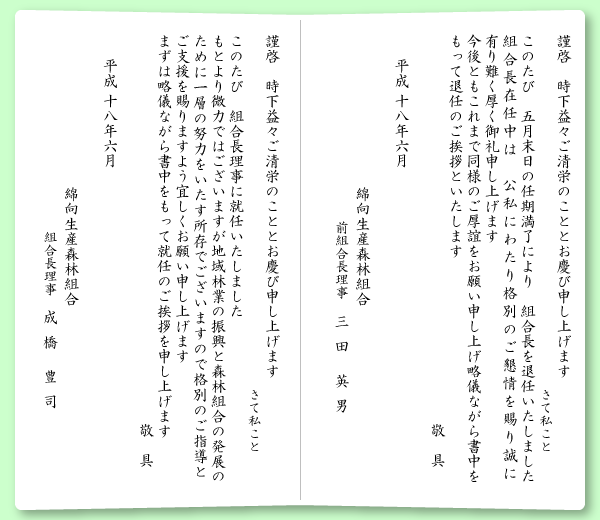 謹啓　時下益々ご清栄のこととお慶び申し上げます
さて私こと
このたび　五月末日の任期満了により　組合長を退任いたしました
組合長在任中は　公私にわたり格別のご懇情を賜り誠に
有り難く厚く御礼申し上げます
今後ともこれまで同様のご厚誼をお願い申し上げ略儀ながら書中を
もって退任のご挨拶といたします
敬具
平成十八年六月
綿向生産森林組合
前組合長理事　三田　英男
謹啓　時下益々ご清栄のこととお慶び申し上げます
さて私こと
このたび　組合長理事に就任いたしました
もとより微力ではございますが地域林業の振興と森林組合の発展の
ために一層の努力をいたす所存でございますので格別のご指導と
ご支援を賜りますよう宜しくお願い申し上げます
まずは略儀ながら書中をもって就任のご挨拶を申し上げます
敬具
平成十八年六月
綿向生産森林組合
組合長理事　成橋　豊司